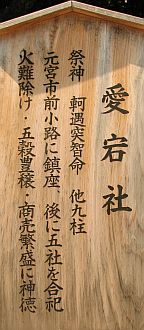 愛宕社
祭神 軻遇突智命 他九柱
元宮市前小路に鎮座、後に五社を合祀
火難除け・五穀豊穣・商売繁盛に神徳